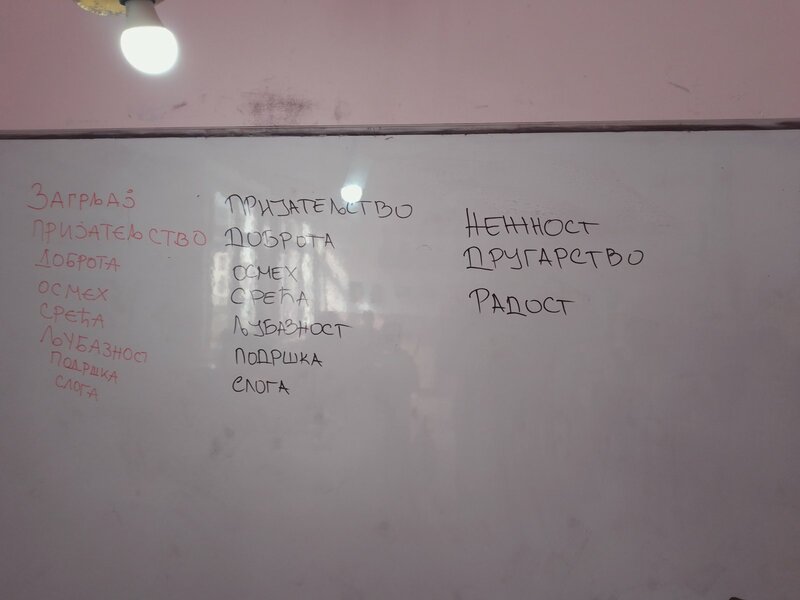 ЗАГРЉАЈ
ПРИЈАТЕЉСТВО
ДОБРОТА
ОСМЕХ
СРЕЋА
ЉУБАЗНОСТ
ПОДРШКА
СЛОГА
ПРИЈАТЕЉСТВО
ДОБРОТА
ОСМЕХ
СРЕЋА
ЉУБАЗНОСТ
ПОДРШКА
СЛОГА
НЕЖНОСТ
ДРУГАРСТВО
РАДОСТ